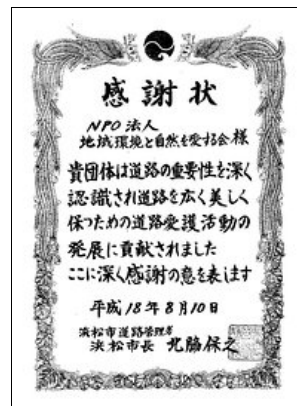 感謝状
NPO法人
地域環境と自然を愛する会 様
貴団体は道路の重要性を深く
認識され道路を広く美しく
保つための道路愛護活動の
発展に貢献されました
ここに深く感謝の意を表します
平成18年8月10日
浜松市道路管理者
浜松市長 北脇保之